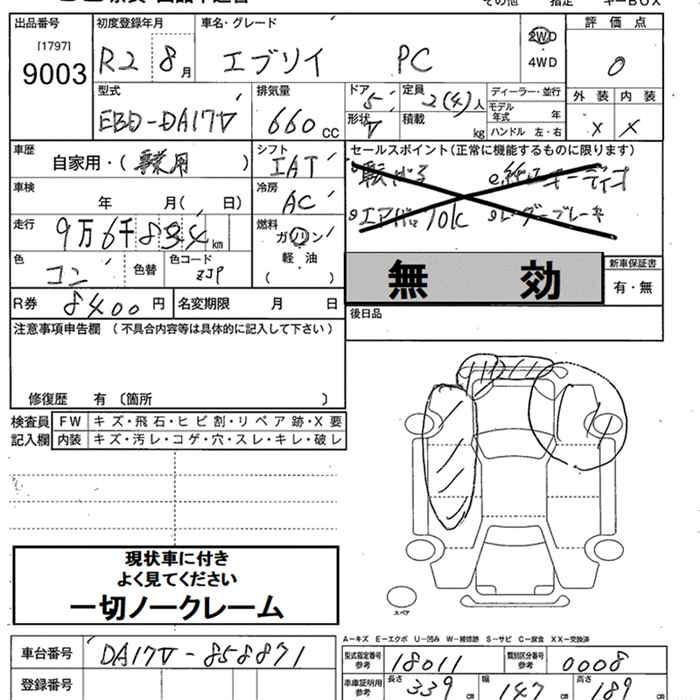 出品番号 初度登録年月 車名・グレード 2WD 評価点
[1797] 9003 R2 8月 エブリイ PC 4WD 0
型式 排気量 ドア 5 定員 2(4)人 ディーラー・並行 外装 内装
EBD-DA17V 660cc 形状 V 積載 kg モデル年式 年 X X
ハンドル 左・右
車歴 自家用・(事業用) シフト IAT セールスポイント(正常に機能するものに限ります)
車検 年 月( 日) 冷房 AC
走行 9万6千834km 燃料 ガソリン エアバッグ
色 コン 色替 色コード ZJP 軽油 ( ) 無効 新車保証書
R券 8400円 名変期限 月 日 有・無
注意事項申告欄 (不具合内容等は具体的に記入して下さい) 後日品
修復歴 有 〔箇所 〕
検査員記入欄 FW キズ・飛石・ヒビ割・リペア跡・X要
内装 キズ・汚レ・コゲ・穴・スレ・キレ・破レ
現状車に付き
よく見てください
一切ノークレーム
スペア
A-キズ E-エクボ U-凹み W-補修跡 S-サビ C-腐食 XX-交換済
車台番号 DA17V-858871 型式指定番号 参考 18011 類別区分番号 参考 0008
登録番号 車庫証明用 参考 長さ 339 CM 幅 147 CM 高さ 189 CM